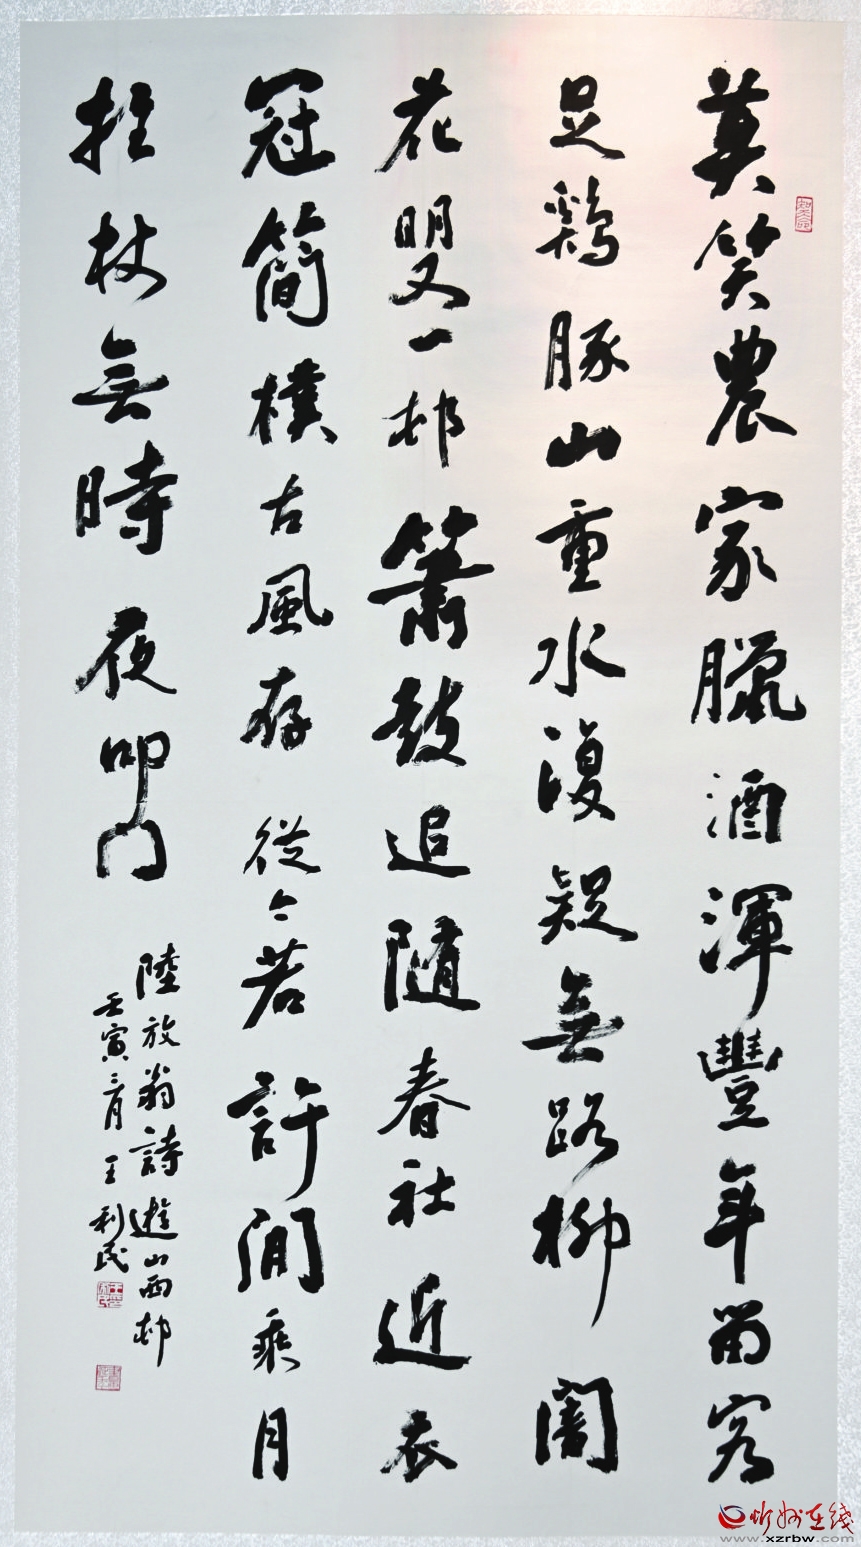 莫笑農家臘酒渾豐年留客
足鷄豚山重水復疑無路柳闇
花明又一邨簫鼓追隨春社近衣
冠簡樸古風存從今若許閒乘月
拄杖無時夜叩门
陸放翁詩遊山西邨
壬寅三月王利民
忻州在线
www.xzrbw.com